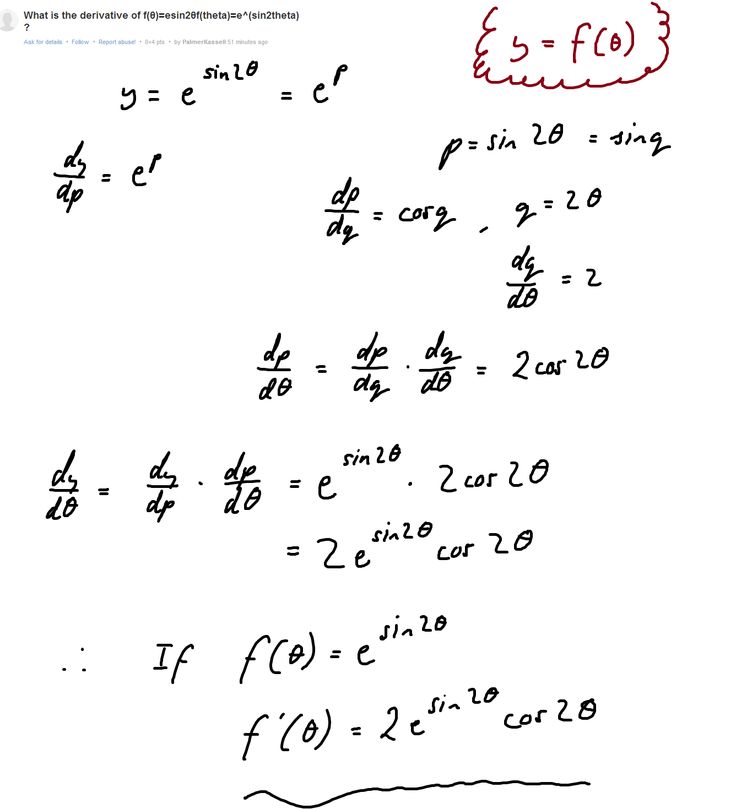 What is the derivative of f(θ)=esin2θf(theta)=e^(sin2theta)
?
Ask for details • Follow • Report abuse! • 8+4 pts • by PalmerKassell 51 minutes ago
y = f(θ)
y = e^{sin2θ} = e^p
p = sin 2θ = sin q
dy/dp = e^p
dp/dq = cos q , q = 2θ
dq/dθ = 2
dp/dθ = dp/dq · dq/dθ = 2 cos 2θ
dy/dθ = dy/dp · dp/dθ = e^{sin2θ} · 2 cos 2θ
= 2 e^{sin2θ} cos 2θ
∴ If f(θ) = e^{sin2θ}
f'(θ) = 2 e^{sin2θ} cos 2θ